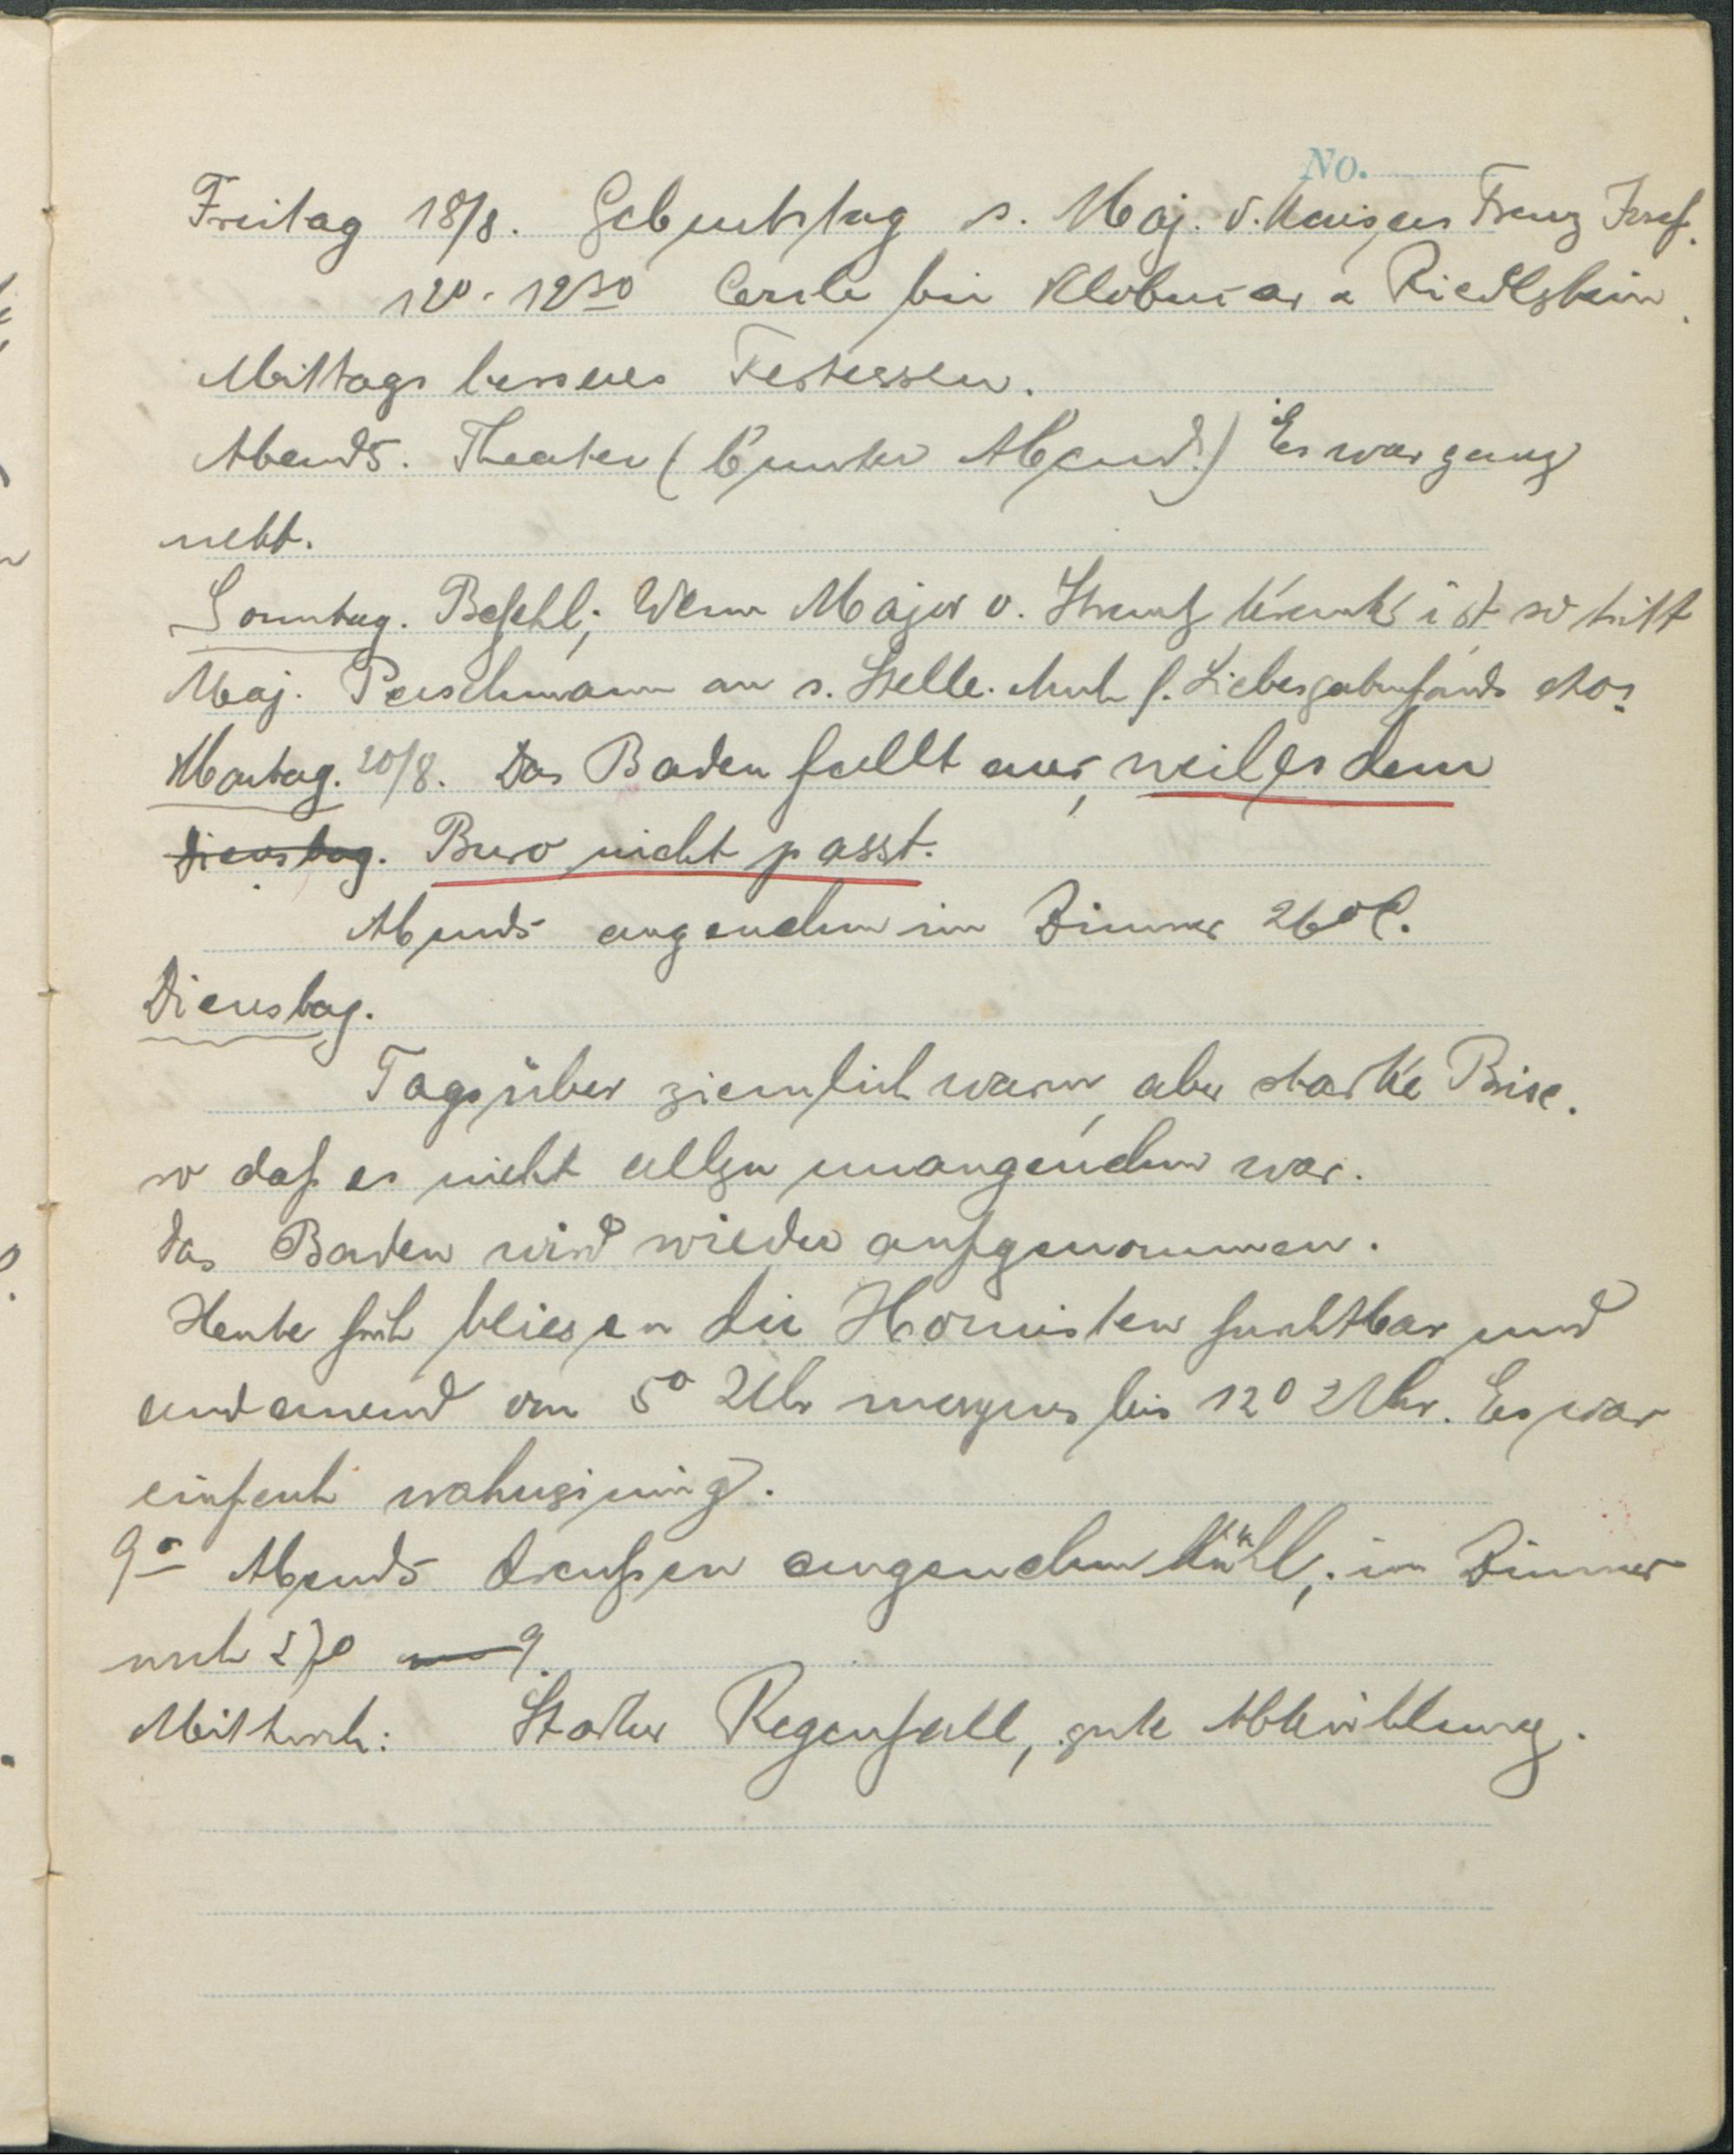 No.
Freitag 18/8. Geburtstag s. Maj. d. Kaisers Franz Josef.
12⁰ - 12³⁰ Cercle bei Klobučar u Riedlstein.
Mittags besseres Festessen.
Abends. Theater (Bunter Abend.) Es war ganz
nett.
Sonntag. Befehl; Wenn Major v. Strantz krank ist so tritt
Maj. Perschmann an s. Stelle. Auch f. Liebesgabenfonds etc.
Montag. 20/8. Das Baden fällt aus, weil es dem
Dienstag. Buro nicht passt.
Abends angenehm im Zimmer 26°C.
Dienstag.
Tagsüber ziemlich warm, aber starke Brise.
so daß es nicht allzu unangenehm war.
das Baden wird wieder aufgenommen.
Heute früh bliesen die Hornisten furchtbar und
andauernd von 5⁰ Uhr morgens bis 12⁰ Uhr. Es war
einfach wahnsinnig.
9⁰ Abends draußen angenehm kühl, im Zimmer
noch 27⁰
Mittwoch: Starker Regenfall, gute Abkühlung.